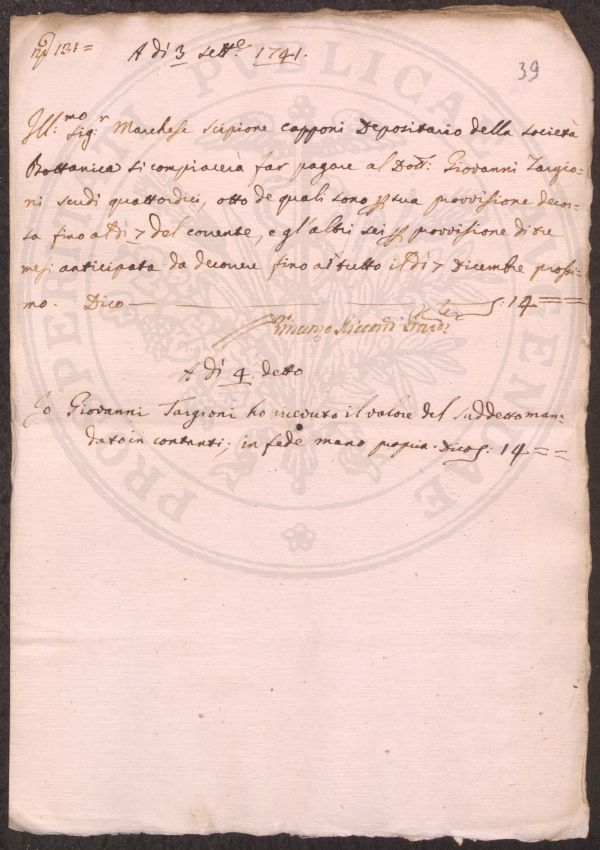 nº 131 =
A dì 3 sett.e 1741.
39
Ill.mo Sig.r Marchese Scipione Capponi Depositario della società
Bottanica si compiacerà far pagare al Dott: Giovanni Targio-
ni scudi quattordici, otto de quali sono p sua provvisione decor-
sa fino a dì 7 del corrente, e gl'altri sei p provvisione di tre
mesi anticipata da decorrere fino a tutto il dì 7 Dicembre prossi-
mo. Dico 14 ==
A dì 4 detto
Io Giovanni Targioni ho ricevuto il valore del suddetto man-
dato in contanti; in fede mano propria. Dico : 14 ==
PROSPERITATI PUBLICAE